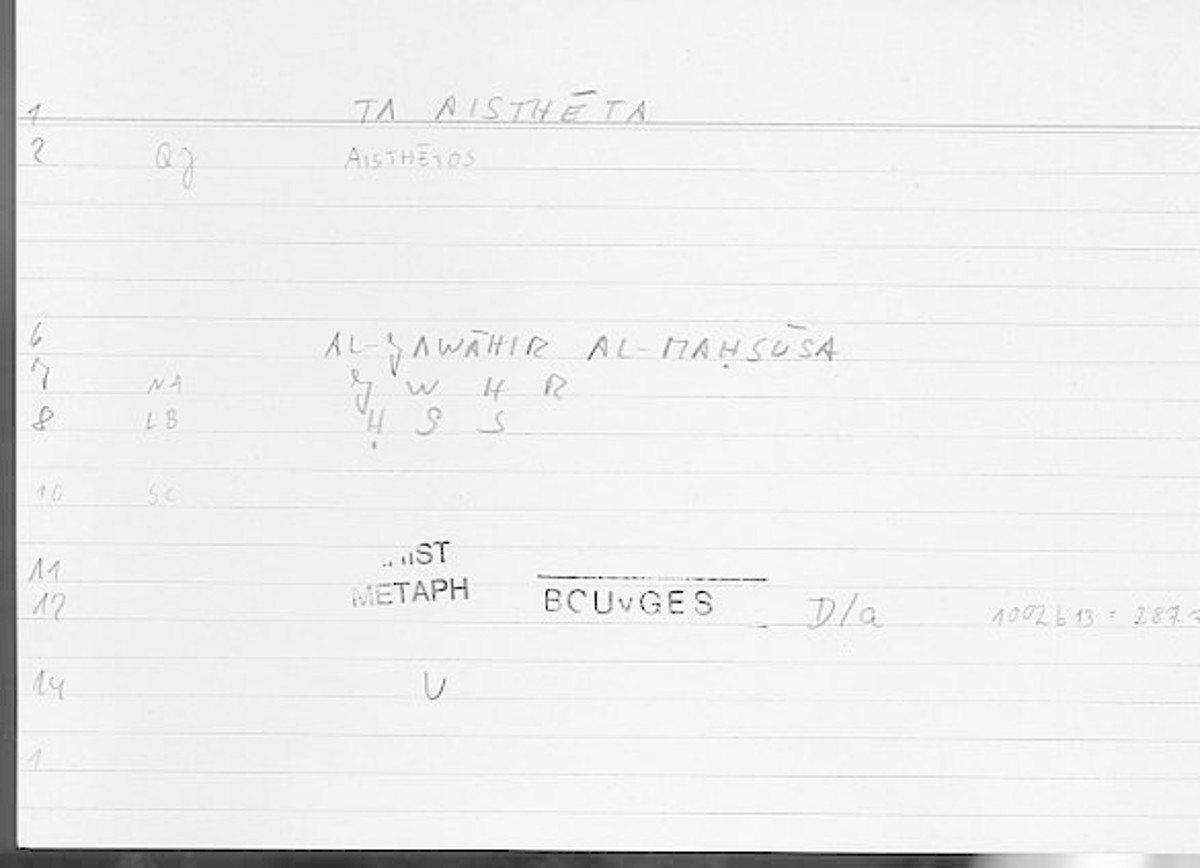 1 TA AISTHĒTA
2 QJ AISTHĒTOS
6 AL-ǦAWĀHIR AL-MAḤSŪSA
7 NA Ǧ W H R
8 LB Ḥ S S
10 SC
11 IST
12 METAPH BOUvGES D/a 1002 b 13 = 287.7
14 U
1